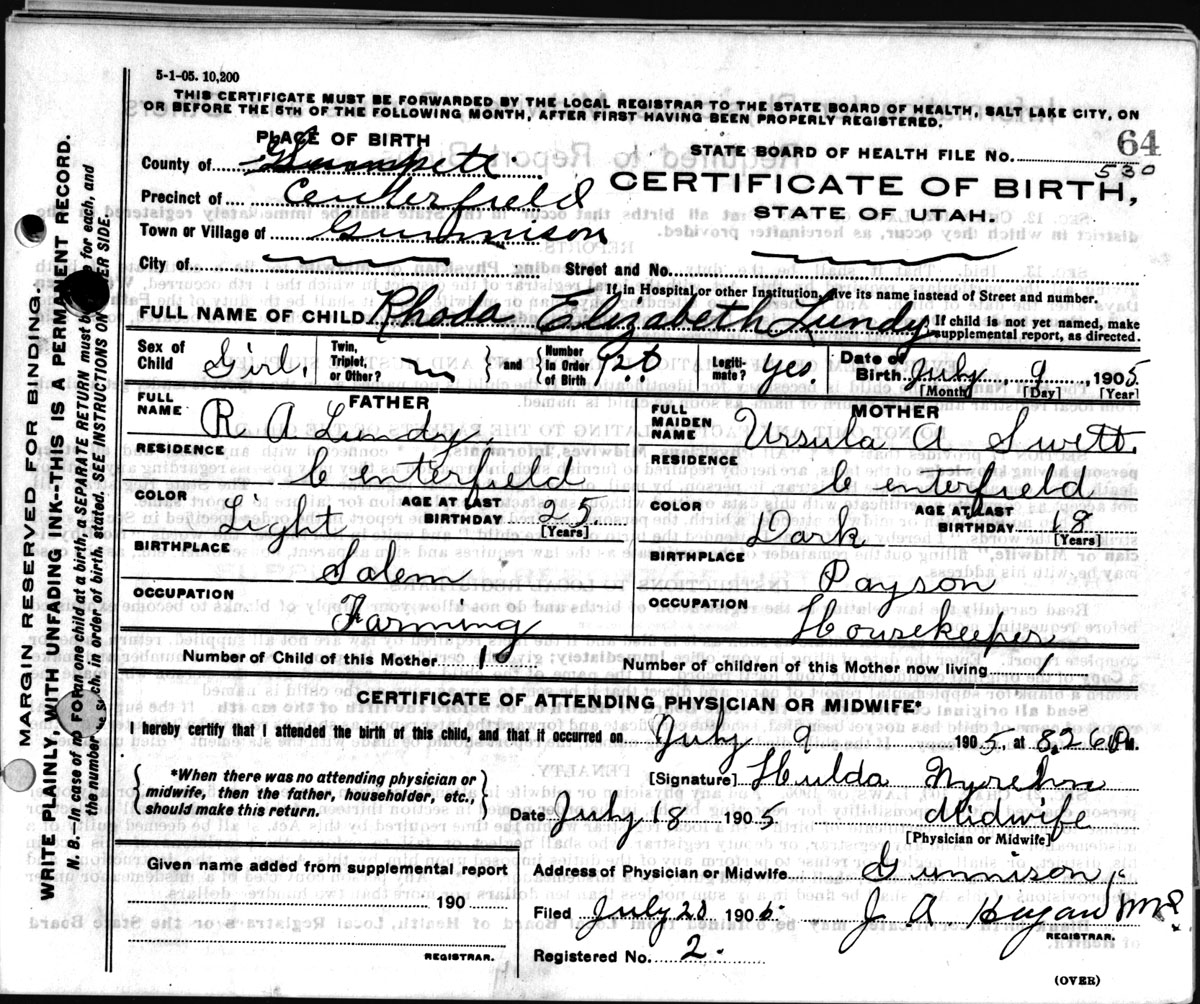 5-1-05. 10,200
THIS CERTIFICATE MUST BE FORWARDED BY THE LOCAL REGISTRAR TO THE STATE BOARD OF HEALTH, SALT LAKE CITY, ON
OR BEFORE THE 5TH OF THE FOLLOWING MONTH, AFTER FIRST HAVING BEEN PROPERLY REGISTERED.
PLACE OF BIRTH
County of
Precinct of Centerfield
Town or Village of Gunnison
City of
STATE BOARD OF HEALTH FILE NO. 64
530
CERTIFICATE OF BIRTH,
STATE OF UTAH.
Street and No.
If in Hospital or other Institution, give its name instead of Street and number.
FULL NAME OF CHILD Rhoda Elizabeth Lundy
If child is not yet named, make
supplemental report, as directed.
Sex of Child Girl.
Twin, Triplet, or Other?
and
Number In Order of Birth
Legiti-mate? yes.
Date of Birth July 9, 1905
[Month] [Day] [Year]
FATHER
FULL NAME R A Lundy
RESIDENCE
Centerfield
COLOR Light
AGE AT LAST BIRTHDAY 25
[Years]
BIRTHPLACE
Salem
OCCUPATION
Farming
MOTHER
FULL MAIDEN NAME Ursula A Swett
RESIDENCE
Centerfield
COLOR Dark
AGE AT LAST BIRTHDAY 18
[Years]
BIRTHPLACE
Payson
OCCUPATION
Housekeeper
Number of Child of this Mother 1
Number of children of this Mother now living 1
CERTIFICATE OF ATTENDING PHYSICIAN OR MIDWIFE*
I hereby certify that I attended the birth of this child, and that it occurred on July 9 1905, at 8.26 P.M.
*When there was no attending physician or
midwife, then the father, householder, etc.,
should make this return.
[Signature] Hulda
Date July 18 1905 Midwife
[Physician or Midwife]
Given name added from supplemental report
190
REGISTRAR.
Address of Physician or Midwife Gunnison
Filed July 20 1905 J. A. Hagan MD
REGISTRAR.
Registered No. 2.
(OVER)
MARGIN RESERVED FOR BINDING.
WRITE PLAINLY, WITH UNFADING INK--THIS IS A PERMANENT RECORD.
N. B.--In case of more than one child at a birth, a SEPARATE RETURN must be made for each, and
the number of each, in order of birth, stated. SEE INSTRUCTIONS ON OTHER SIDE.